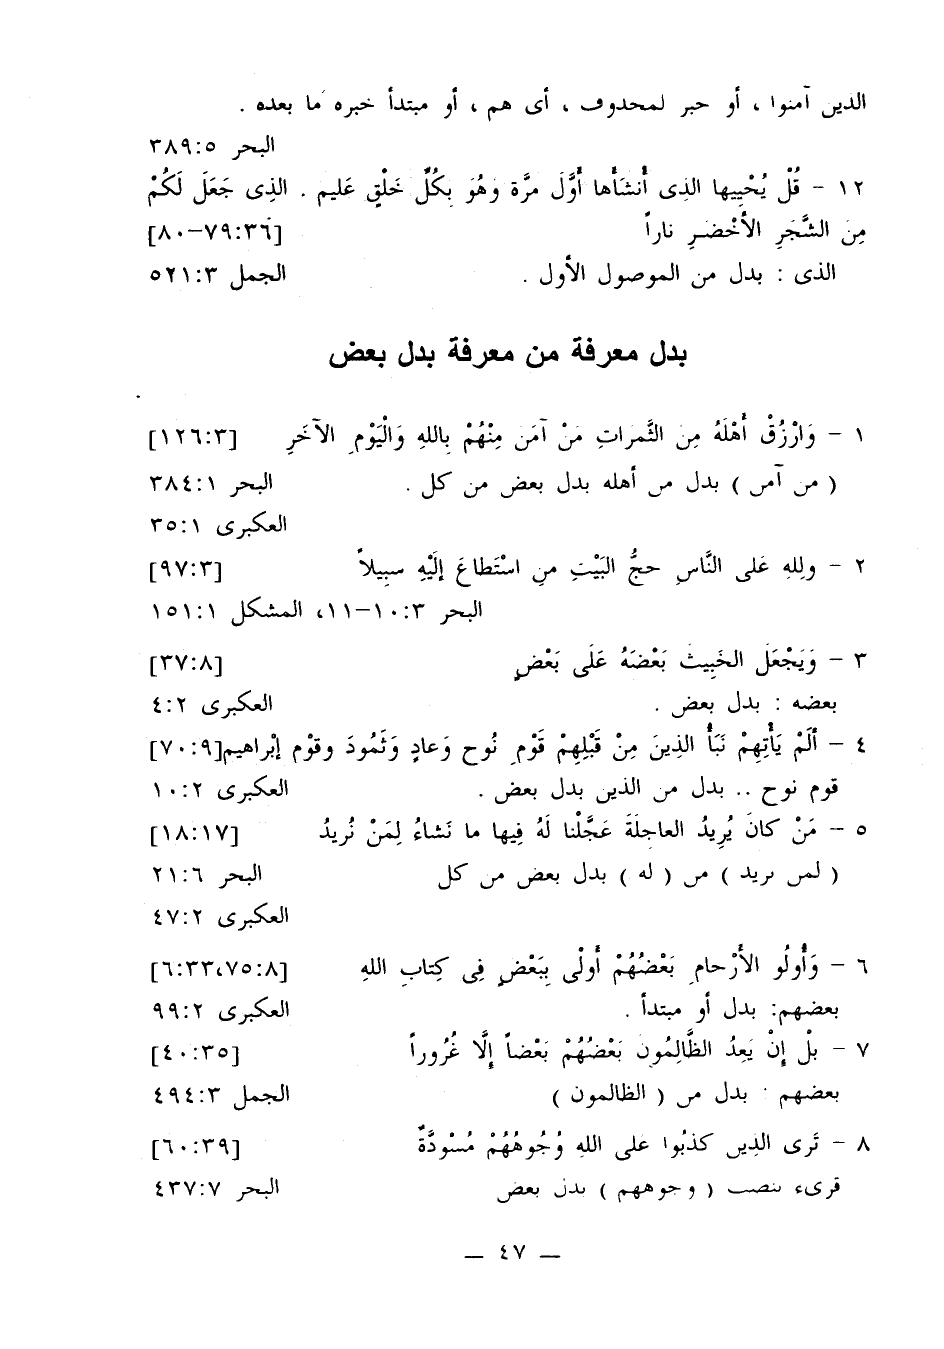 الذين آمنوا ، أو خبر لمحذوف ، أى هم ، أو مبتدأ خبره ما بعده .
البحر ٣٨٩:٥
١٢ – قُلْ يُحْيِيها الذى أَنشَأَها أَوَّلَ مرَّة وهُوَ بِكُلِّ خَلْقٍ عَليم . الذِى جَعَلَ لَكُمْ
مِنَ الشَّجَرِ الأَخْضَرِ ناراً [٧٩:٣٦–٨٠]
الذى : بدل من الموصول الأول . الجمل ٥٢١:٣
بدل معرفة من معرفة بدل بعض
١ – وَارْزُقْ أَهْلَهُ مِنَ الثَّمراتِ مَنْ آمَنَ مِنْهُمْ بِاللهِ وَالْيَوْمِ الآخَرِ [١٢٦:٣]
( من آمن ) بدل من أهله بدل بعض من كل . البحر ٣٨٤:١
العكبرى ٣٥:١
٢ – ولِلهِ عَلى النَّاسِ حجُّ البَيْتِ منِ اسْتَطاعَ إلَيْهِ سبِيلاً [٩٧:٣]
البحر ١٠:٣–١١، المشكل ١٥١:١
٣ – وَيَجْعَلَ الخَبِيثَ بَعْضَهُ عَلَى بَعْضٍ [٣٧:٨]
بعضه : بدل بعض . العكبرى ٤:٢
٤ – أَلَمْ يَأْتِهِمْ نَبَأُ الذِينَ مِنْ قَبْلِهِمْ قَوْمِ نُوح وَعادٍ وَثَمُودَ وقوْم إبْراهيم[٧٠:٩]
قوم نوح .. بدل من الذين بدل بعض . العكبرى ١٠:٢
٥ – مَنْ كانَ يُرِيدُ العاجِلَةَ عَجَّلْنا لَهُ فِيها ما نَشاءُ لِمَنْ نُرِيدُ [١٨:١٧]
( لمن نريد ) من ( له ) بدل بعض من كل البحر ٢١:٦
العكبرى ٤٧:٢
٦ – وَأُولُو الأَرْحامِ بَعْضُهُمْ أَولْى بِبَعْضٍ فِى كِتابِ اللهِ [٦:٣٣،٧٥:٨]
بعضهم: بدل أو مبتدأ . العكبرى ٩٩:٢
٧ – بلْ إنْ يَعِدُ الظَّالِمُونَ بَعْضُهُمْ بَعْضاً إلَّا غُرُوراً [٤٠:٣٥]
بعضهم : بدل من ( الظالمون ) الجمل ٤٩٤:٣
٨ – تَرى الذِين كذبُوا على اللهِ وُجُوهُهُمْ مُسْودَّةٌ [٦٠:٣٩]
قرىء بنصب ( وجوههم ) بدل بعض البحر ٤٣٧:٧
— ٤٧ —